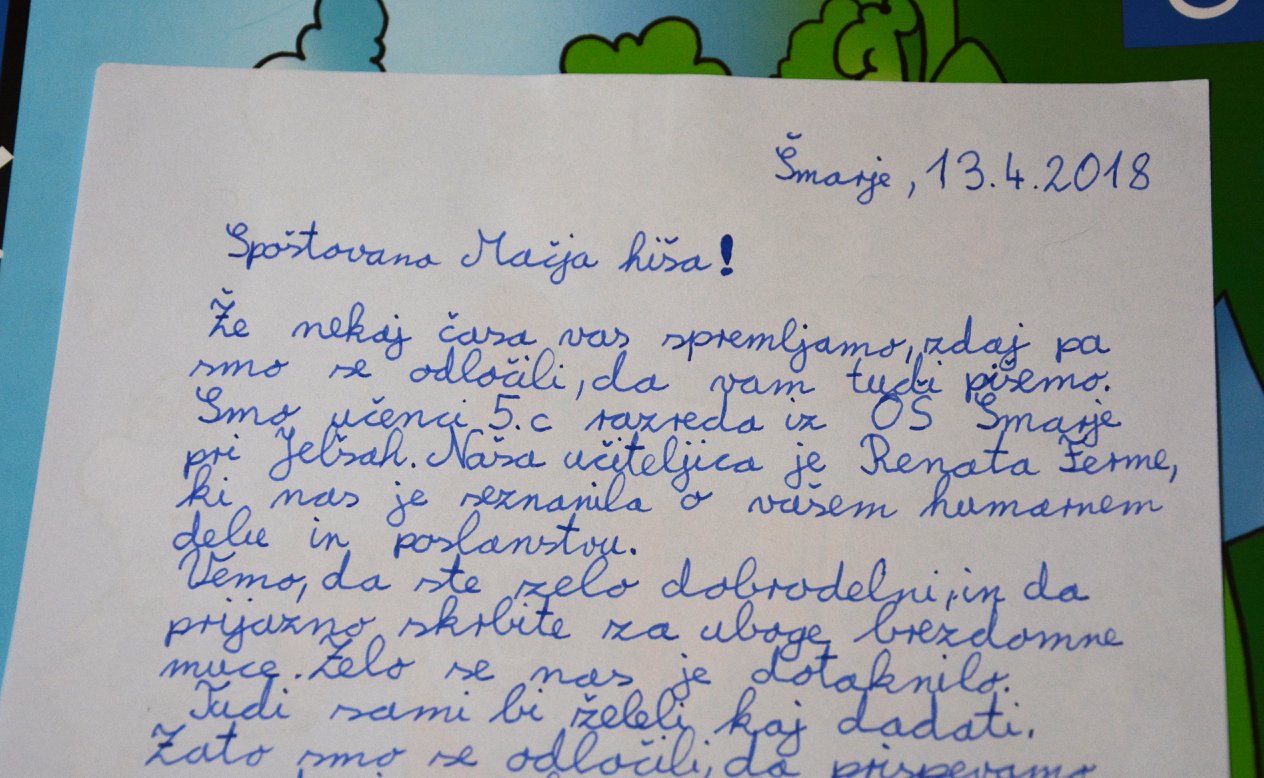 Šmarje, 13.4.2018
Spoštovana Mačja hiša!
Že nekaj časa vas spremljamo, zdaj pa
smo se odločili, da vam tudi pišemo.
Smo učenci 5.c razreda iz OŠ Šmarje
pri Jelšah. Naša učiteljica je Renata Ferme,
ki nas je seznanila o vašem humarnem
delu in poslanstvu.
Vemo, da ste zelo dobrodelni, in da
prijazno skrbite za uboge brezdomne
muce. Zelo se nas je dotaknilo.
Tudi sami bi želeli kaj dodati.
Zato smo se odločili, da prispevamo